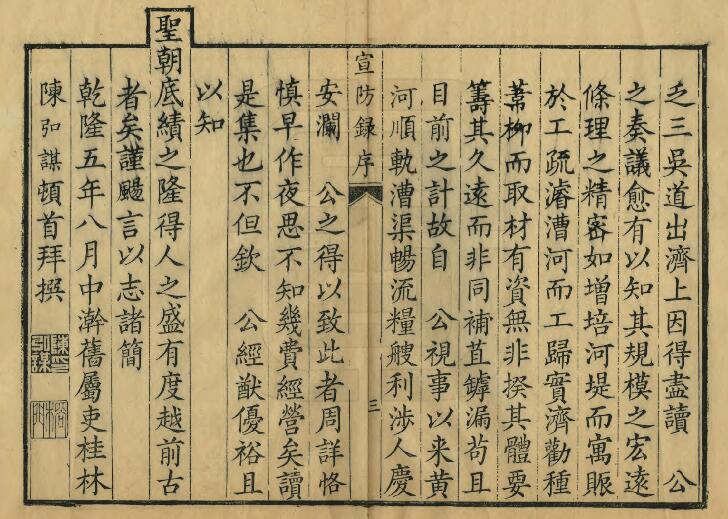 之三吳道出濟上因得盡讀　公
之奏議愈有以知其規模之宏遠
條理之精密如增培河堤而寓賑
於工疏濬漕河而工歸實濟勸種
葦柳而取材有資無非揆其體要
籌其久遠而非同補苴罅漏苟且
目前之計故自　公視事以来黄
河順軌漕渠暢流糧艘利涉人慶
宣防錄序
三
安瀾　公之得以致此者周詳恪
慎早作夜思不知幾費經營矣讀
是集也不但欽　公經猷優裕且
以知
聖朝底績之隆得人之盛有度越前古
者矣謹颺言以志諸簡
乾隆五年八月中澣舊屬吏桂林
陳弘謀頓首拜撰